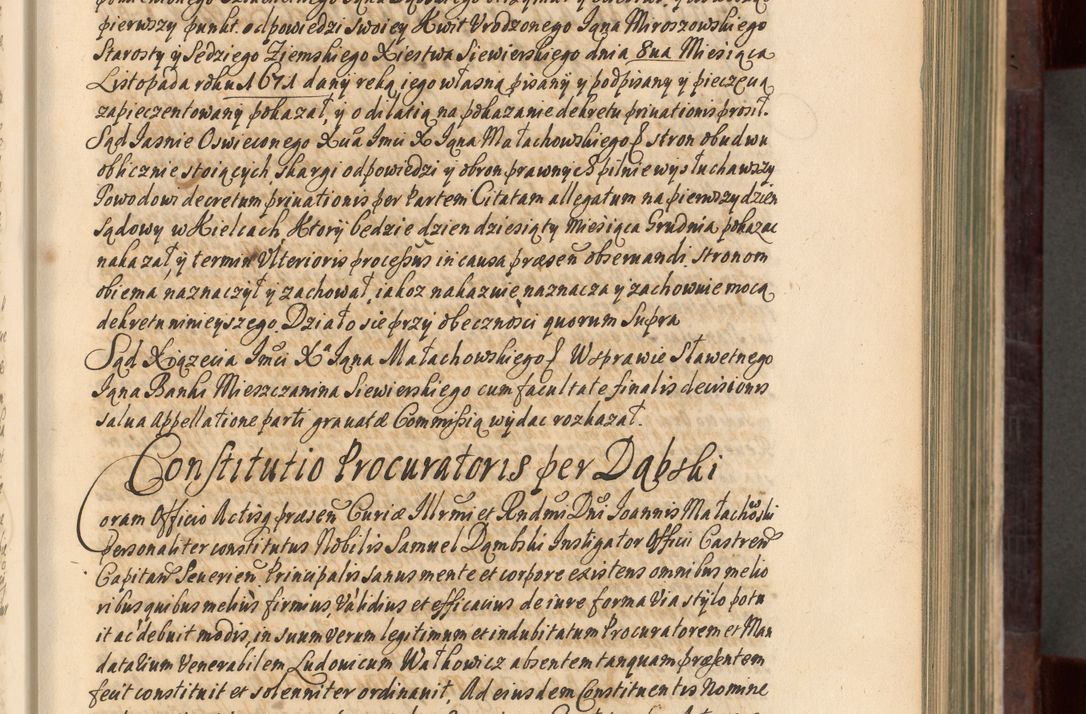 pierwszy punkt odpowiedzi swoiey Kwit Urodzonego Jana Mroszowskiego
Starosty y Sędziego Ziemskiego Xiestwa Siewierskiego dnia 8ua Miesiąca
Listopada roku 1671 dany ręką iego własną pisany y podpisany y pieczęcią
zapieczentowany pokazał, y o dilatią na pokazanie dekretu priuationis prosił.
Sąd Jasnie Oswieconego Xcia Imci X Jana Małachowskiego stron obudwu
oblicznie stoiących skargi odpowiedzi y obron prawnych pilnie wysłuchawszy
Powodowi decretum priuationis per Partem Citatam allegatum na pierwszy dzien
sądowy w Kielcach, Ktory będzie dzien dziesiąty Miesiąca Grudnia pokazac
nakazał, y termin Ulterioris processus in causa præsen obseruandi stronom
obiema naznaczył y zachował, iakoz nakazuie, naznacza y zachowuie mocą
dekretu ninieyszego. Działo sie przy obecznosci quorum supra
Sąd Xiązecia Imci Xa Jana Małachowskiego W sprawie Sławetnego
Jana Banki Mieszczanina Siewierskiego cum facultate finalis decisionis
salua Appellatione parti grauatæ Commissią wydac rozkazał.
Constitutio Procuratoris per Dąbski
Coram Officio Actisq præsen Curiæ Illrmi et Rndmi Dni Joannis Małachowski
personaliter constitutus Nobilis Samuel Dąmbski Instigator Officii Castren
Capitan Seuerien Principalis sanus mente et corpore existens omnibus melio
ribus quibus melius firmius, Validius et efficacius de iure forma Via stylo potu
it ac debuit modis, in suum verum legitimum et indubitatum Procuratorem et Man
datarium Venerabilem Ludouicum Wałkowicz absentem tanquam præsentem
fecit constituit et solenniter ordinauit. Ad eiusdem Constituentis Nomine